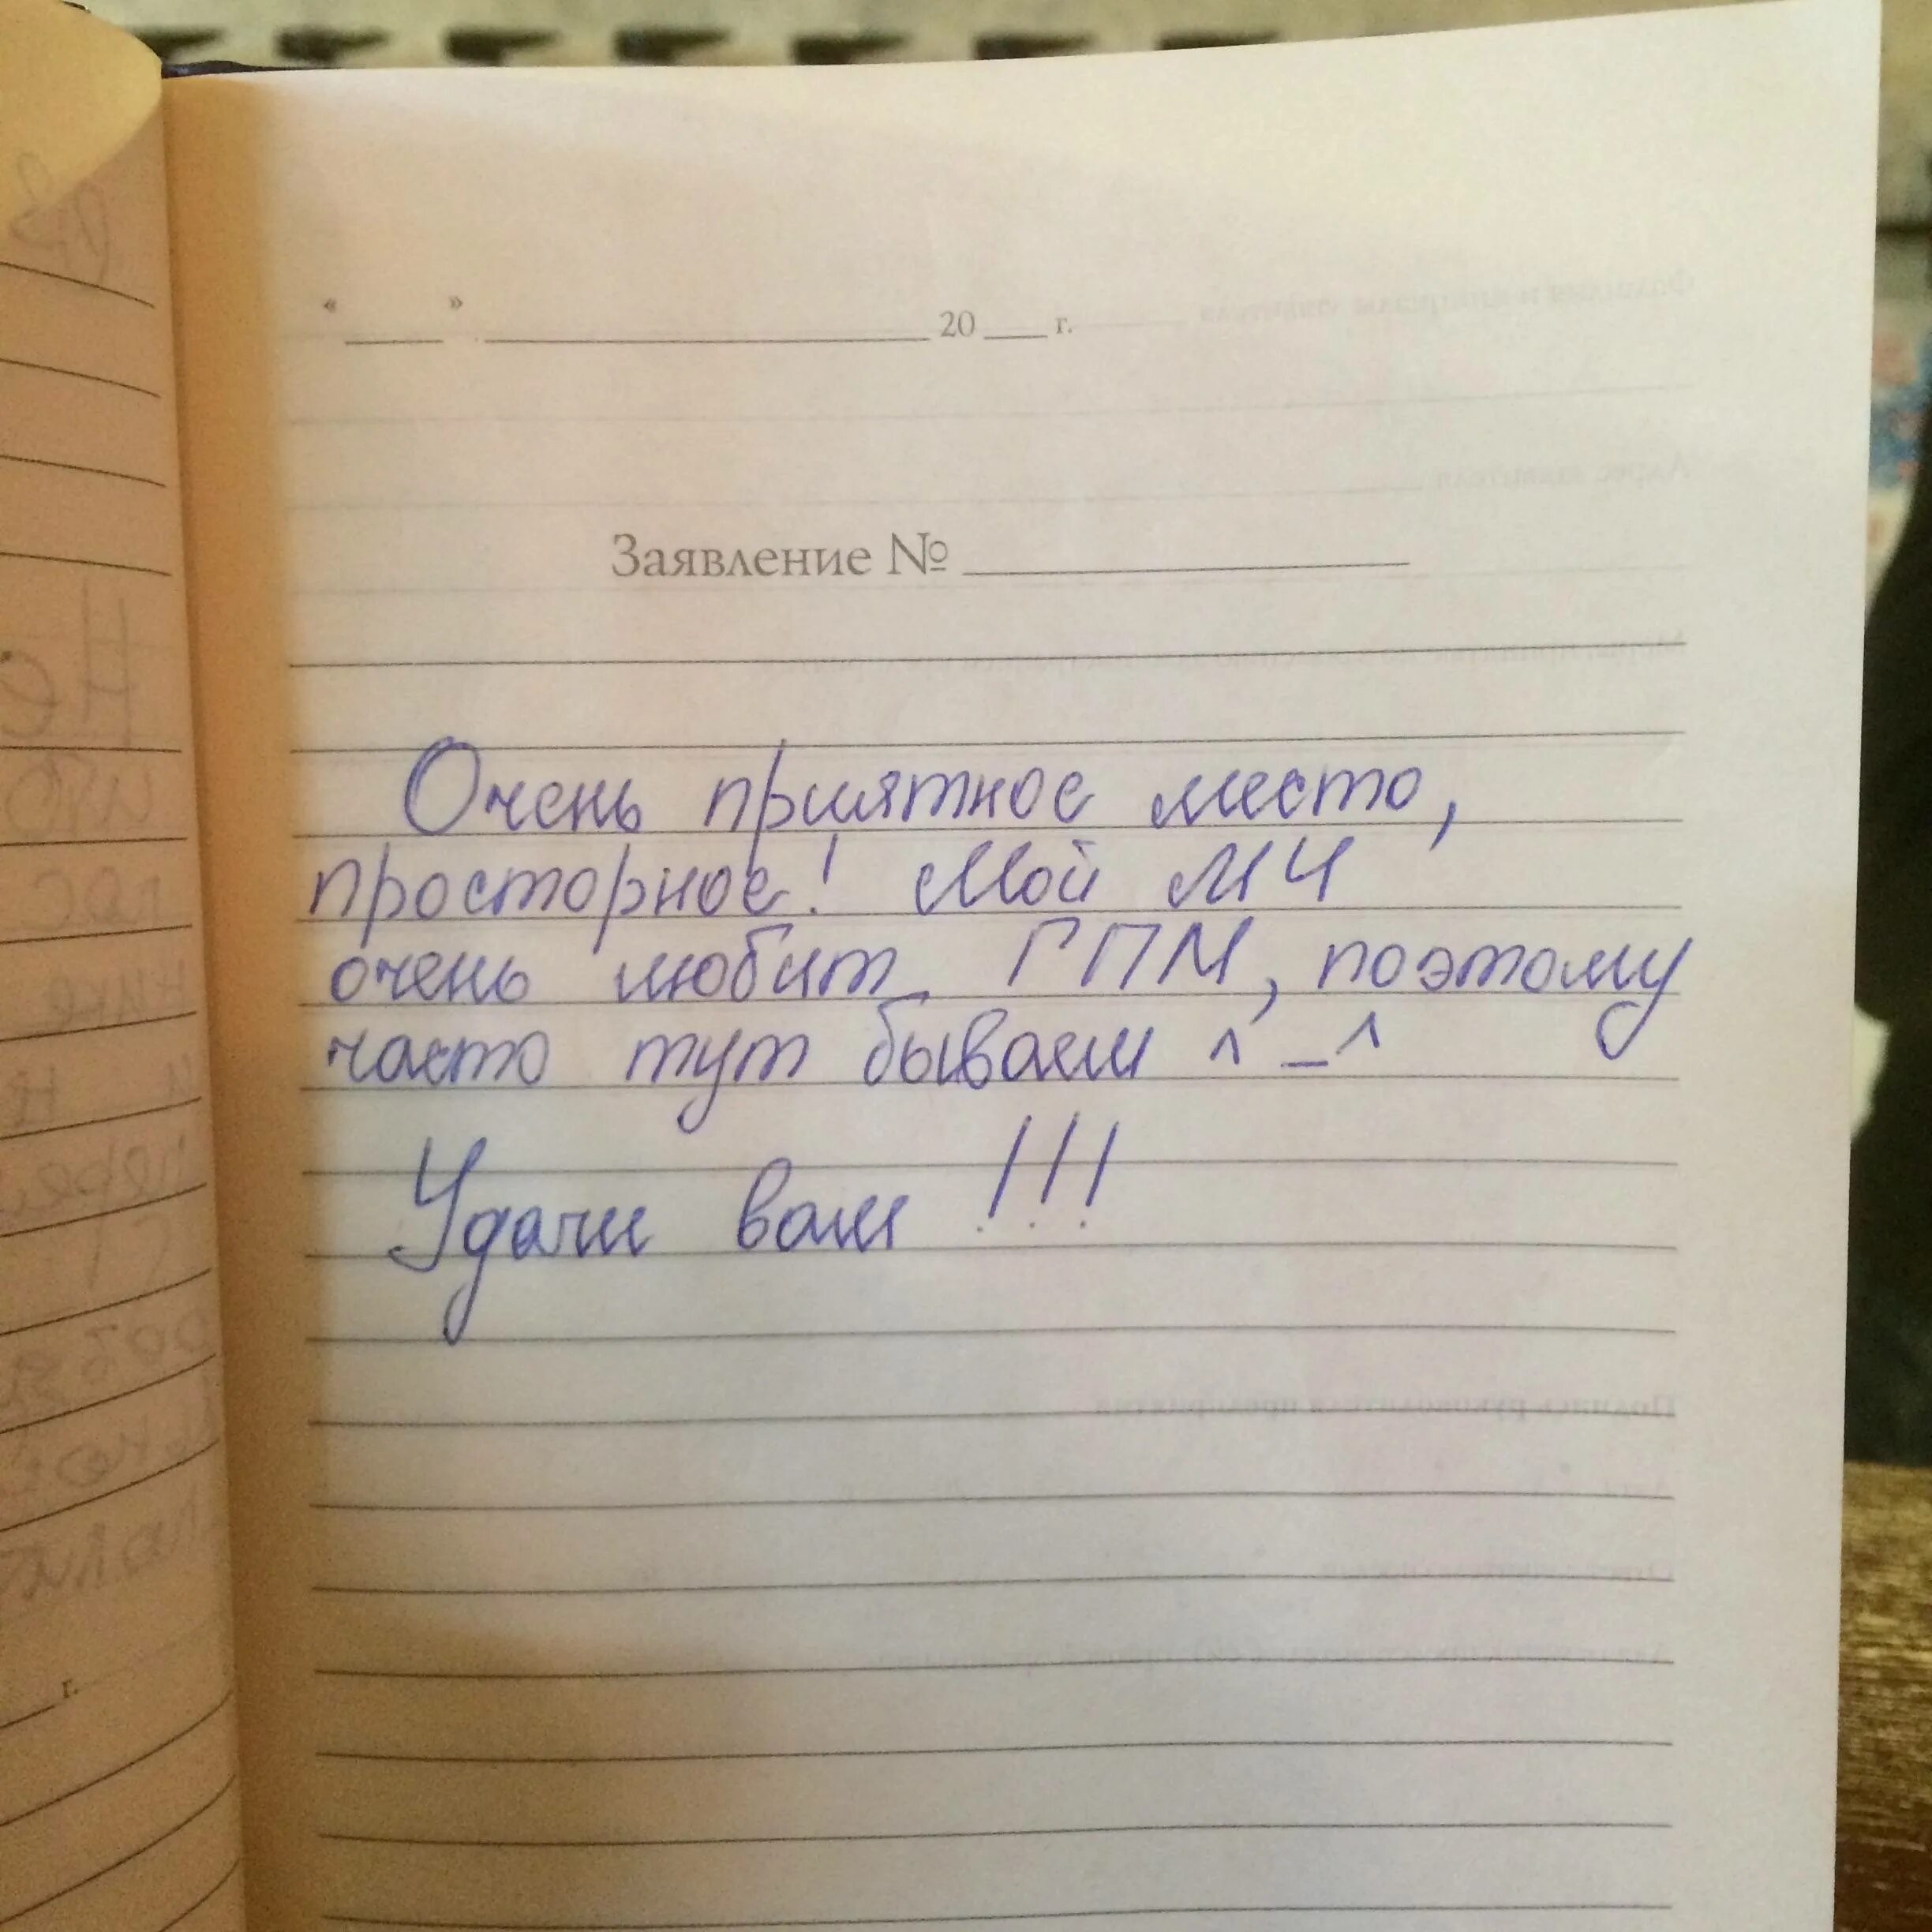 « ____ » ____ 20 ___ г.
Заявление № ____
Очень приятное место,
просторное! Мой МЧ
очень любит ГПМ, поэтому
часто тут бываем ^_^
Удачи вам!!!
г.